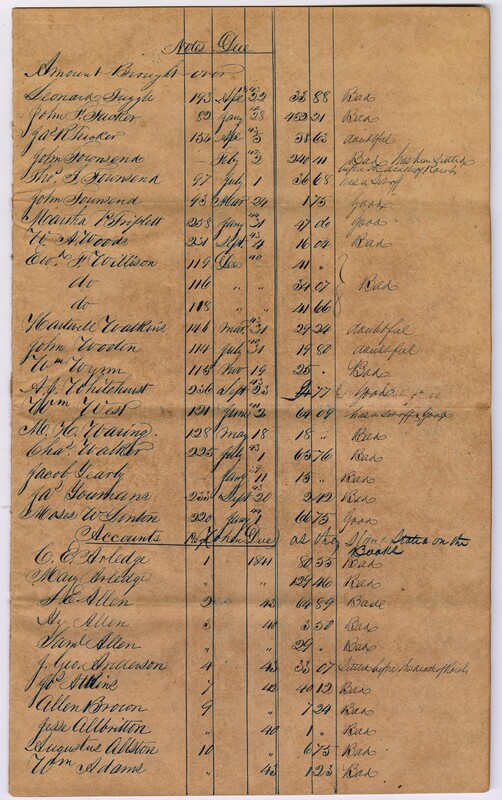 Notes Due
Amount Brought over
Leonard Tuggle 193 Apl 22 33 88 Bad
John F. Tucker 82 Jany 28 452 21 Bad
Jas R Tucker 152 Apl 3 38 63 doubtful
John Townsend – Feby 2 240 41 Bad has him Settled before the death of
Thos. T Townsend 97 July 1 36 68 has a Set off
John Townsend 93 Mar 24 1 75 Good
Martha P Triplett 258 Jany 31 47 06 good
W. A Woods 231 Sept 4 16 04 Bad
Edwd F Willison 119 Dec 40 41 "
do 116 " " 34 07 Bad
do 118 " " 41 66
Hartwell Watkins 146 Mar 31 29 24 doubtful
John Wooten 114 July 31 19 80 doubtful
Wm Wynn 115 Nov 19 25 " Bad
A. J. Whitehurst 236 Sept 23 77 Good
Wm West 121 June 2 64 09 has a Set off & Good
M. H. Waring. 128 May 18 18 " Bad
Chas. Walker 225 July 1 65 76 Bad
Jacob Yearby Jany 11 15 " Bad
Jas Youmans 233 Sept 20 2 42 Bad
Moses W Linton 220 Jany 1 66 75 Good
Accounts Page When Due as they Stand Stated on the Books
C. E. Arledge 1 1841 80 35 Bad
May Arledge " 129 46 Bad
S. E Allen 2 43 64 89 Bade
Hy Allen 3 40 3 50 Bad
Saml Allen " " 29 " Bad
J. Geo. Anderson 4 43 33 07 Settled before the death of
Jos Atkins 7 42 40 12 Bad
Allen Brown 9 " 7 24 Bad
Jesse Allbritton " 40 1 " Bad
Augustus Allston 10 " 6 75 Bad
Wm Adams " 43 1 23 Bad